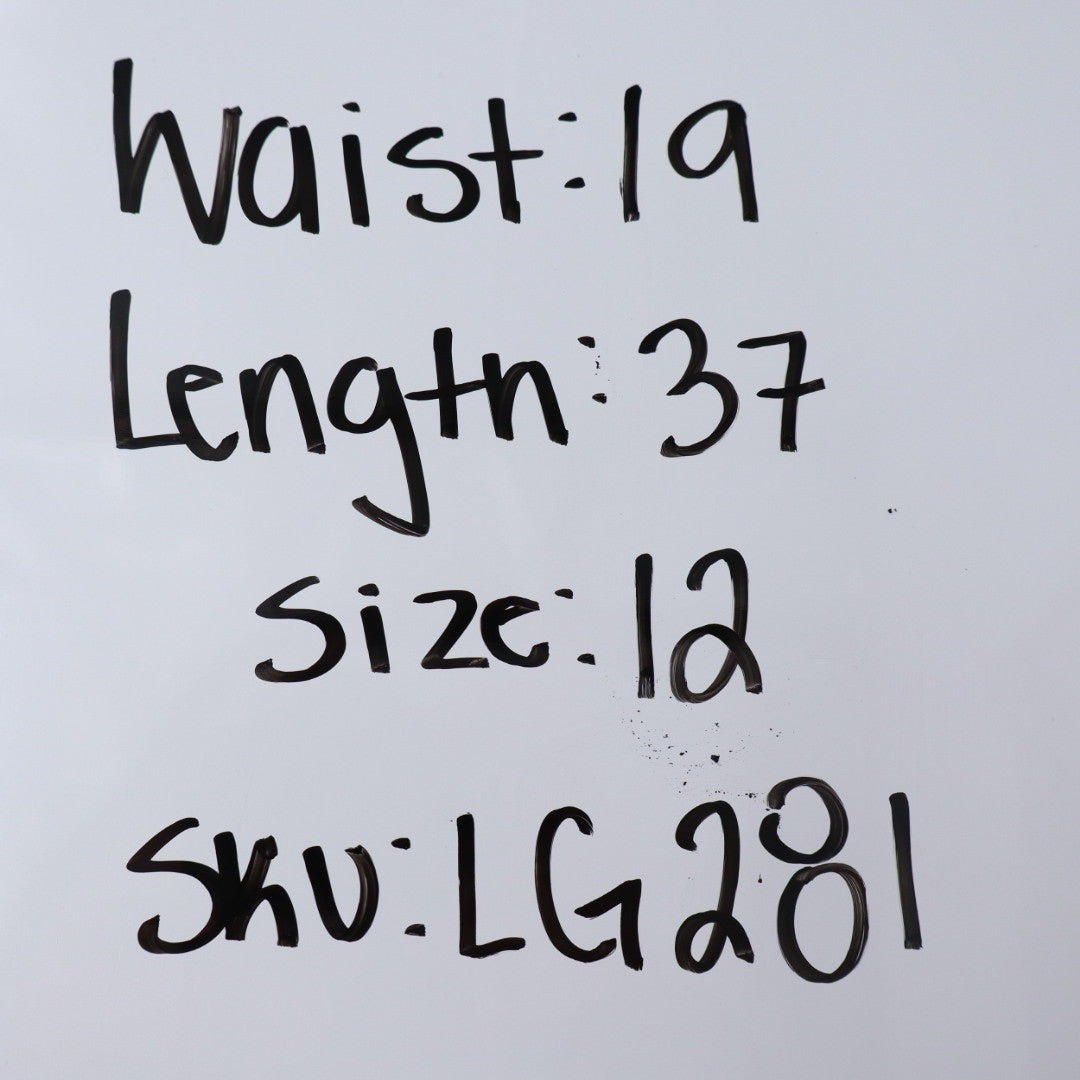 Waist: 19
Length: 37
Size: 12
SKU: LG281